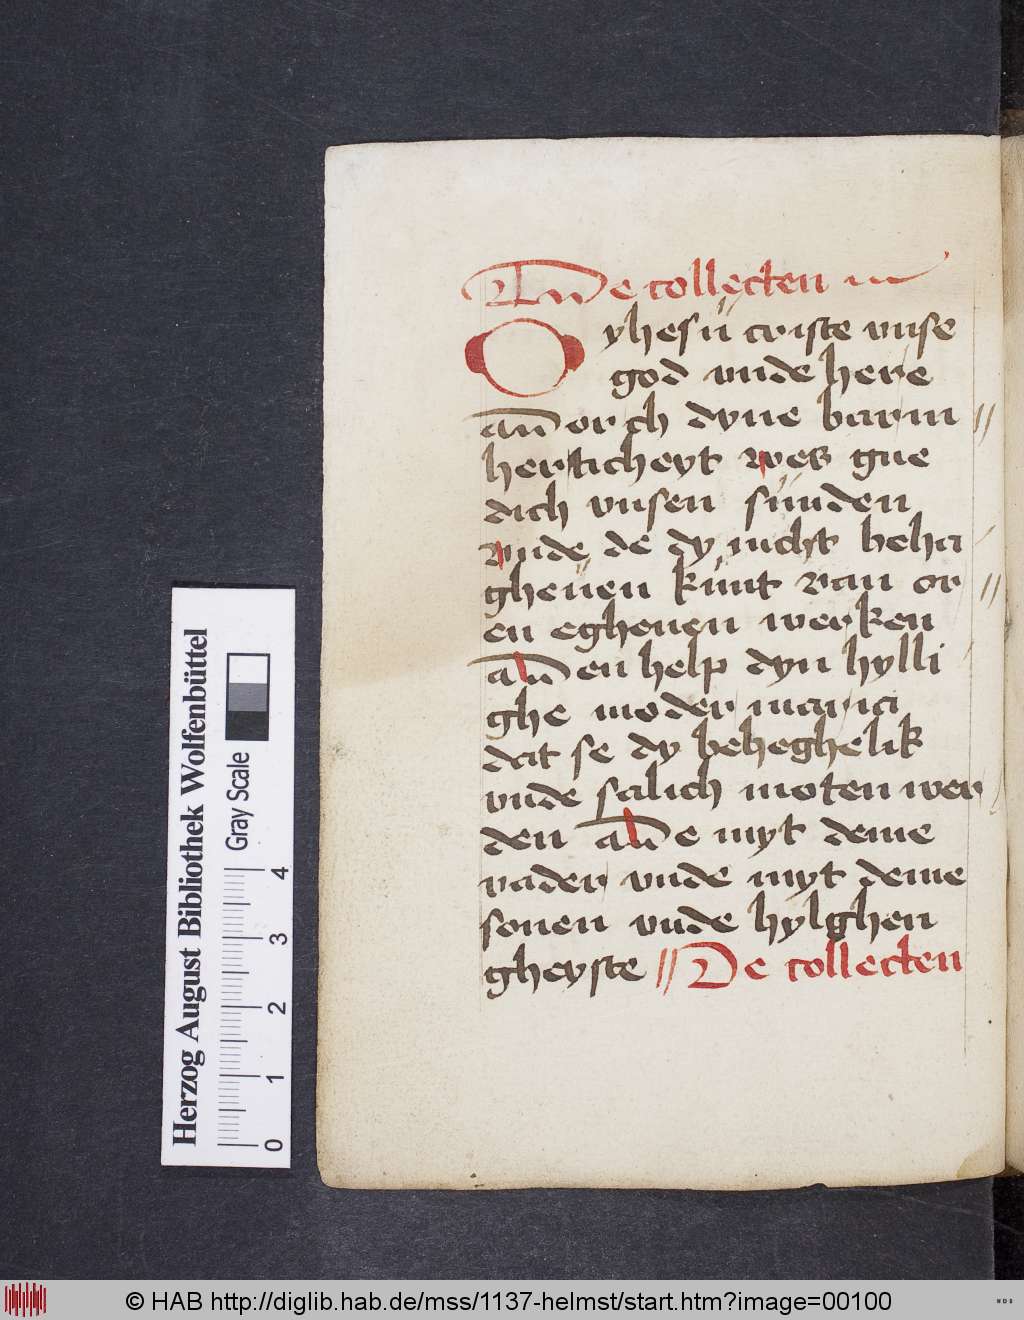 De collecten
O yhesu criste unse
god unde here
dorch dyne barm //
herticheyt wes gne
dich unsen sunden
unde de dy nicht beha
ghenen kunt van or //
en eghenen werken
en help dyn hylli
ghe moder maria
dat se dy beheghelik
unde salich moten wer
den myt deme
vader unde myt deme
sonen unde hylghen
gheyste // De collecten
Herzog August Bibliothek Wolfenbüttel
Gray Scale
0 1 2 3 4
© HAB http://diglib.hab.de/mss/1137-helmst/start.htm?image=00100